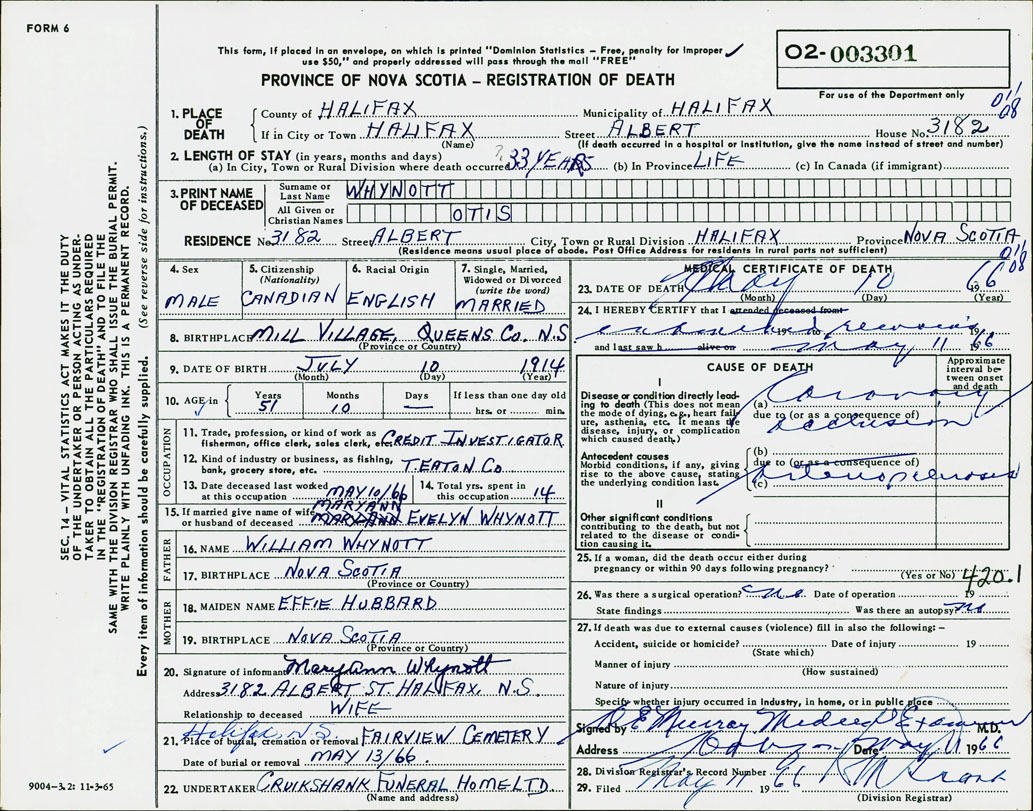 FORM 6
This form, if placed in an envelope, on which is printed "Dominion Statistics – Free, penalty for improper
use $50," and properly addressed will pass through the mail "FREE"
PROVINCE OF NOVA SCOTIA – REGISTRATION OF DEATH
02-003301
For use of the Department only
1. PLACE OF DEATH
County of HALIFAX Municipality of HALIFAX
If in City or Town HALIFAX Street ALBERT House No. 3182
(Name) (If death occurred in a hospital or institution, give the name instead of street and number)
2. LENGTH OF STAY (in years, months and days)
(a) In City, Town or Rural Division where death occurred 33 YEARS (b) In Province LIFE (c) In Canada (if immigrant)
3. PRINT NAME OF DECEASED
Surname or Last Name WHYNOTT
All Given or Christian Names OTIS
RESIDENCE No. 3182 Street ALBERT City, Town or Rural Division HALIFAX Province NOVA SCOTIA
(Residence means usual place of abode. Post Office Address for residents in rural parts not sufficient)
4. Sex MALE
5. Citizenship (Nationality) CANADIAN
6. Racial Origin ENGLISH
7. Single, Married, Widowed or Divorced (write the word) MARRIED
8. BIRTHPLACE MILL VILLAGE, QUEENS CO. N.S
(Province or Country)
9. DATE OF BIRTH JULY 10 1914
(Month) (Day) (Year)
10. AGE in Years 51 Months 10 Days — If less than one day old hrs. or min.
OCCUPATION
11. Trade, profession, or kind of work as fisherman, office clerk, sales clerk, etc. CREDIT INVESTIGATOR
12. Kind of industry or business, as fishing, bank, grocery store, etc. T. EATON CO
13. Date deceased last worked at this occupation MAY 10/66
14. Total yrs. spent in this occupation 14
15. If married give name of wife or husband of deceased MARYANN EVELYN WHYNOTT
FATHER
16. NAME WILLIAM WHYNOTT
17. BIRTHPLACE NOVA SCOTIA
(Province or Country)
MOTHER
18. MAIDEN NAME EFFIE HUBBARD
19. BIRTHPLACE NOVA SCOTIA
(Province or Country)
20. Signature of informant MaryAnn Whynott
Address 3182 ALBERT ST. HALIFAX, N.S.
Relationship to deceased WIFE
Halifax, N.S.
21. Place of burial, cremation or removal FAIRVIEW CEMETERY
Date of burial or removal MAY 13/66
22. UNDERTAKER CRUIKSHANK FUNERAL HOME LTD.
(Name and address)
MEDICAL CERTIFICATE OF DEATH
23. DATE OF DEATH May 10 1966
(Month) (Day) (Year)
24. I HEREBY CERTIFY that I attended deceased from
19 to 19
and last saw h alive on May 11 1966
CAUSE OF DEATH
Approximate interval between onset and death
I
Disease or condition directly leading to death (This does not mean the mode of dying, e.g., heart failure, asthenia, etc. It means the disease, injury, or complication which caused death.)
(a) Coronary
due to (or as a consequence of)
occlusion
Antecedent causes
Morbid conditions, if any, giving rise to the above cause, stating the underlying condition last.
(b)
due to (or as a consequence of)
(c)
II
Other significant conditions
contributing to the death, but not related to the disease or condition causing it.
25. If a woman, did the death occur either during
pregnancy or within 90 days following pregnancy?
(Yes or No) 420.1
26. Was there a surgical operation? no Date of operation 19
State findings Was there an autopsy? no
27. If death was due to external causes (violence) fill in also the following: –
Accident, suicide or homicide? Date of injury 19
(State which)
Manner of injury
(How sustained)
Nature of injury
Specify whether injury occurred in Industry, in home, or in public place
Signed by R E Murray Medical Examiner M.D.
Address Date May 11 1966
28. Division Registrar's Record Number
29. Filed May 11 1966
(Division Registrar)
SEC. 14 – VITAL STATISTICS ACT MAKES IT THE DUTY
OF THE UNDERTAKER OR PERSON ACTING AS UNDER-
TAKER TO OBTAIN ALL THE PARTICULARS REQUIRED
IN THE "REGISTRATION OF DEATH" AND TO FILE THE
SAME WITH THE DIVISION REGISTRAR WHO SHALL ISSUE THE BURIAL PERMIT.
WRITE PLAINLY WITH UNFADING INK. THIS IS A PERMANENT RECORD.
Every item of information should be carefully supplied. (See reverse side for instructions.)
9004-3.2: 11-3-65